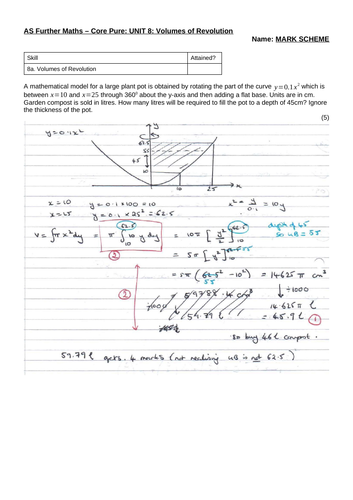 AS Further Maths – Core Pure: UNIT 8: Volumes of Revolution
Name: MARK SCHEME
Skill Attained?
8a. Volumes of Revolution
A mathematical model for a large plant pot is obtained by rotating the part of the curve y=0.1x² which is
between x=10 and x=25 through 360⁰ about the y-axis and then adding a flat base. Units are in cm.
Garden compost is sold in litres. How many litres will be required to fill the pot to a depth of 45cm? Ignore
the thickness of the pot.
(5)
y=0.1x²
y
62.5
55
45
10
10 25 x
x=10 y=0.1×100=10
x=25 y=0.1×25²=62.5
x²= y/0.1 = 10y
V=∫πx²dy = π∫ 62.5 10 10y dy = 10π[y²/2] 62.5 10
depth of 45
so UB=55
= 5π[y²] 62.5 55 10
②
= 5π(62.5²-10²) = 14625π cm³
55
= 59788.4 cm³
÷1000 ÷1000
②
= 59.79 l
14.625π l
= 45.9 l ①
So buy 46 l compost.
59.79 l gets 4 marks (not realising UB is not 62.5)